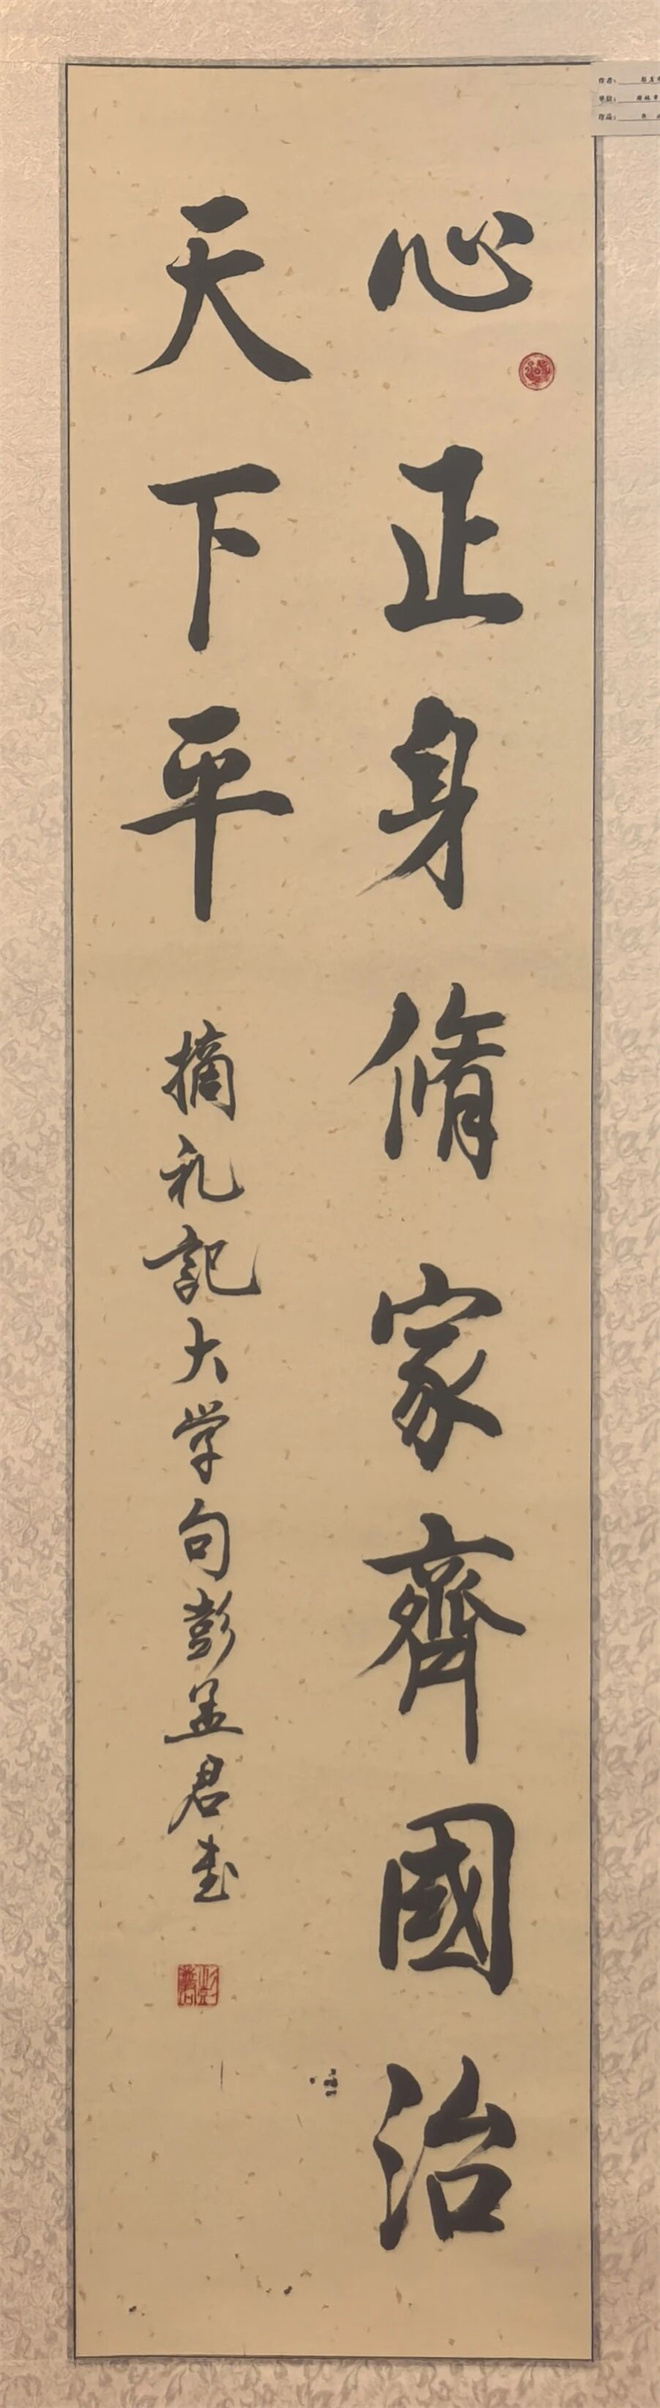 心正身脩家齊國治
天下平
摘礼記大学句彭孟君书
作者：
单位：
作品：